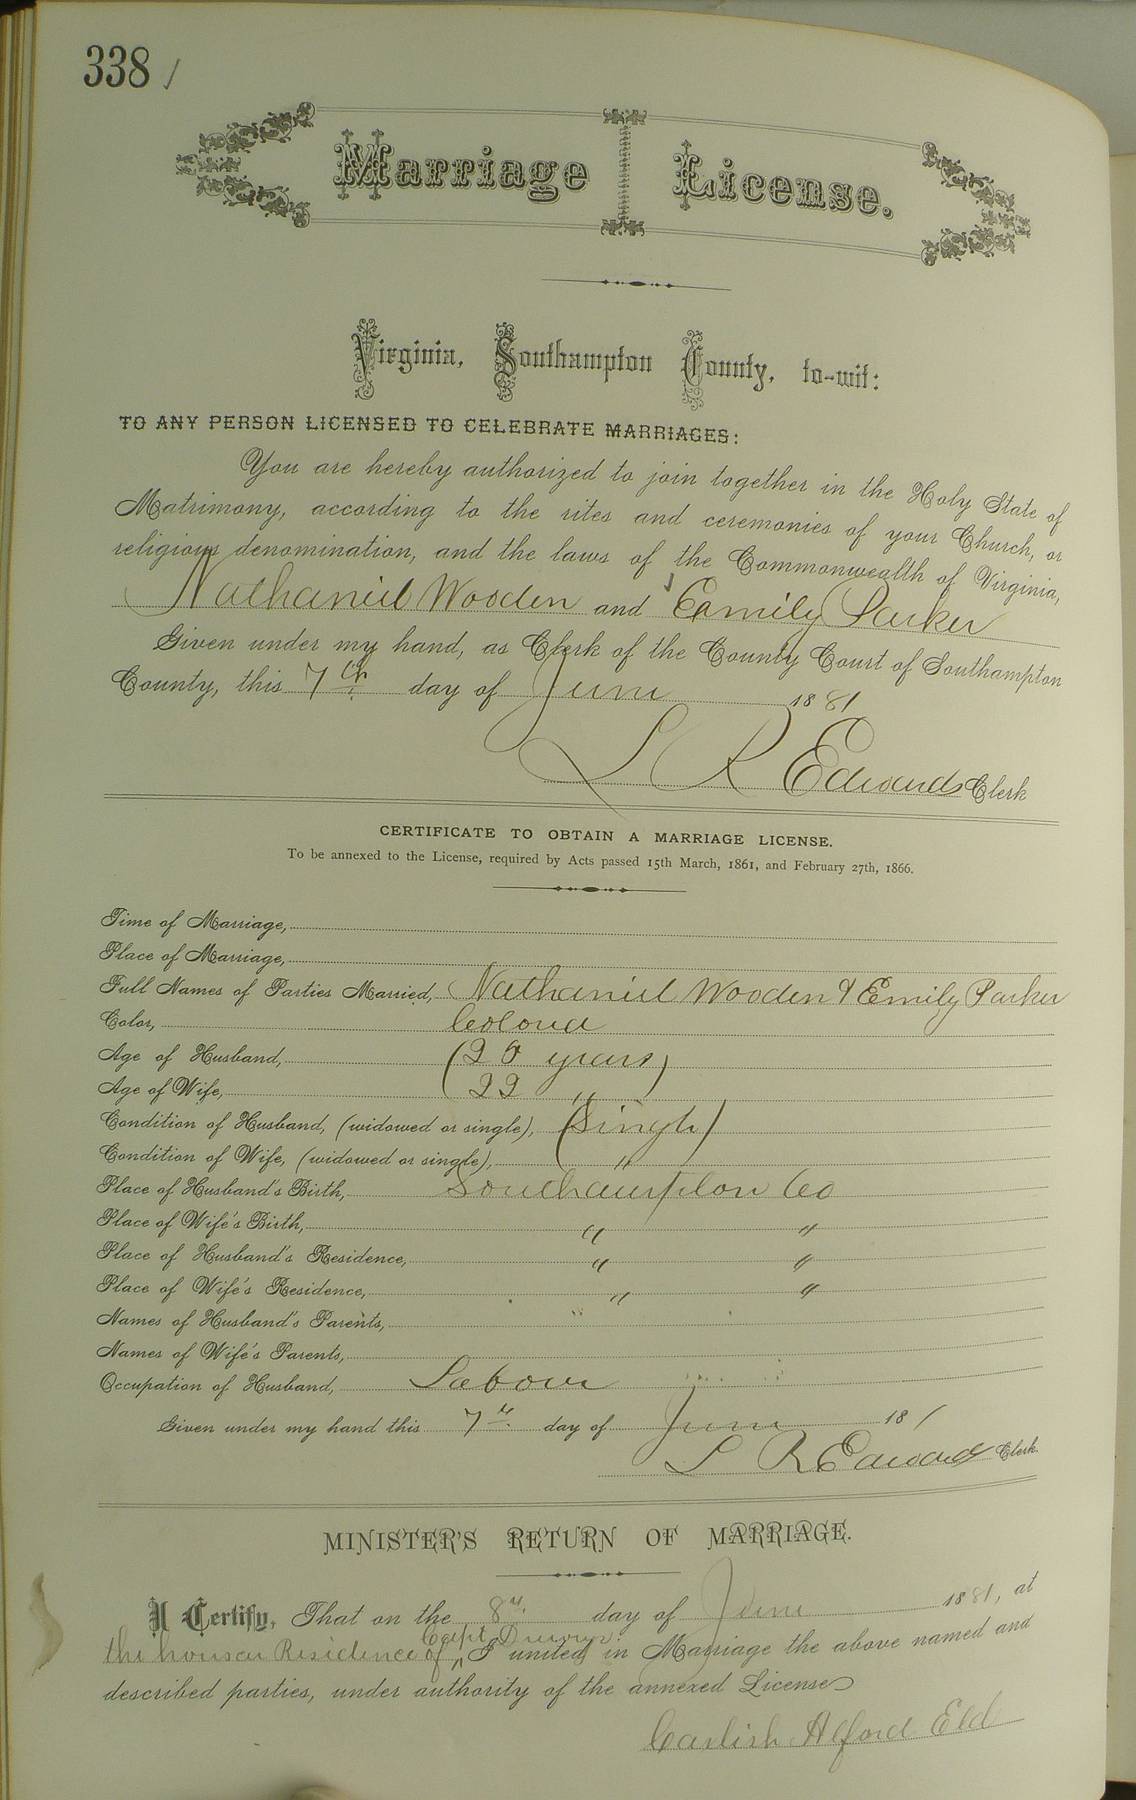 338
Marriage License.
Virginia, Southampton County, to-wit:
TO ANY PERSON LICENSED TO CELEBRATE MARRIAGES:
You are hereby authorized to join together in the Holy State of
Matrimony, according to the rites and ceremonies of your Church, or
religious denomination, and the laws of the Commonwealth of Virginia,
Nathaniel Wooden and Emily Parker
Given under my hand, as Clerk of the County Court of Southampton
County, this 7th day of June 1881
L R Edwards Clerk
CERTIFICATE TO OBTAIN A MARRIAGE LICENSE.
To be annexed to the License, required by Acts passed 15th March, 1861, and February 27th, 1866.
Time of Marriage,
Place of Marriage,
Full Names of Parties Married, Nathaniel Wooden & Emily Parker
Color, Colored
Age of Husband, years
Age of Wife, 22 "
Condition of Husband, (widowed or single), (Single)
Condition of Wife, (widowed or single), "
Place of Husband's Birth, Southampton Co
Place of Wife's Birth, " "
Place of Husband's Residence, " "
Place of Wife's Residence, " "
Names of Husband's Parents,
Names of Wife's Parents,
Occupation of Husband, Labour
Given under my hand this 7th day of June 181
L R Edwards Clerk.
MINISTER'S RETURN OF MARRIAGE.
I Certify, That on the 8th day of June 1881, at
Capt
the Residence of I united in Marriage the above named and
described parties, under authority of the annexed License
Alford Eld